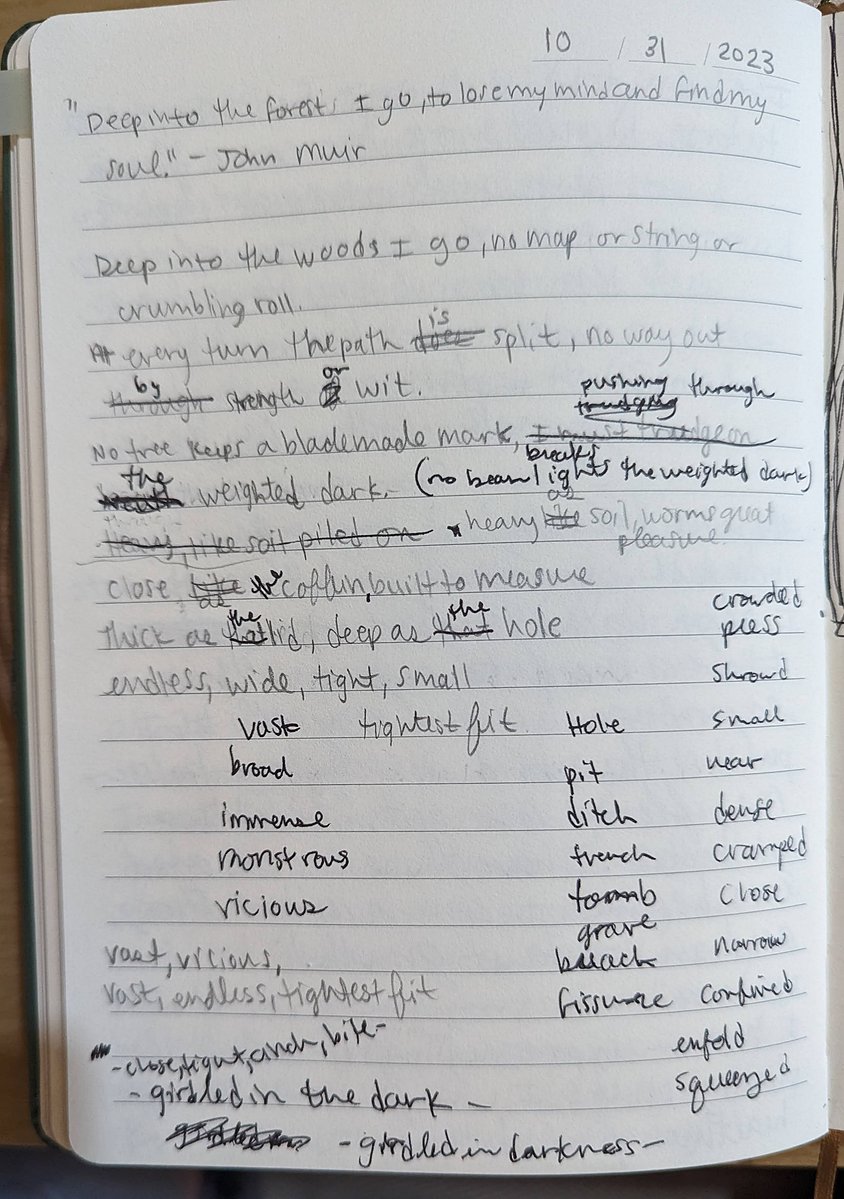 10 / 31 / 2023
"Deep into the forest I go, to lose my mind and find my
soul." - John Muir
Deep into the woods I go, no map or string or
crumbling roll.
At every turn the path does is split, no way out
through by strength or wit.
pushing through
trudging
No tree keeps a blademade mark, I must trudge on
breaks
the weighted dark. (no beam lights the weighted dark)
Heavy, like soil piled on * heavy like as soil, worms great
pleasure
close, like as the coffin, built to measure
thick as that the lid, deep as that the hole
crowded
press
endless, wide, tight, small
shroud
vast tightest fit Hole small
broad pit near
immense ditch dense
monstrous trench cramped
vicious tomb close
grave
vast, vicious, breach narrow
vast, endless, tightest fit fissure confined
enfold
- close, tight, cinch, bite -
squeezed
- girdled in the dark -
- girdled in darkness -